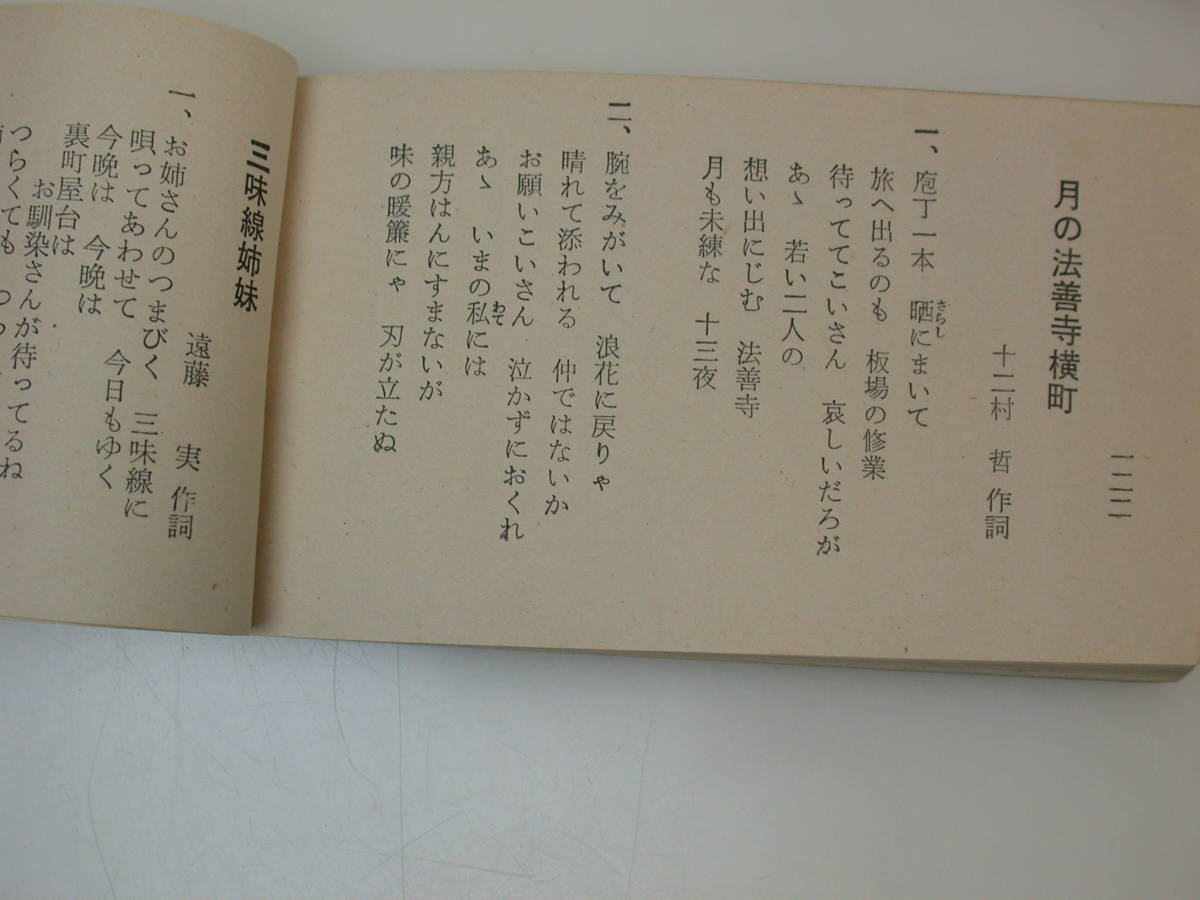 一二二
月の法善寺横町
十二村 哲 作詞
一、庖丁一本 晒にまいて
さらし
旅へ出るのも 板場の修業
待っててこいさん 哀しいだろが
あゝ 若い二人の
想い出にじむ 法善寺
月も未練な 十三夜
二、腕をみがいて 浪花に戻りゃ
晴れて添われる 仲ではないか
お願いこいさん 泣かずにおくれ
あゝ いまの私には
わて
親方はんにすまないが
味の暖簾にゃ 刃が立たぬ
三味線姉妹
遠藤 実 作詞
一、お姉さんのつまびく 三味線に
唄ってあわせて 今日もゆく
今晩は 今晩は
裏町屋台は
お馴染さんが待ってるね
つらくても